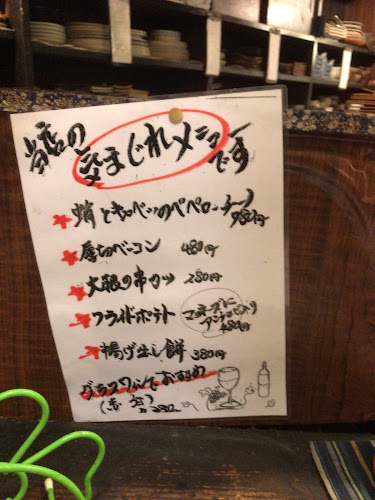 当店の
気まぐれメニューです
★蛸とキャベツのペペロンチーノ 980円
★厚切ベーコン 480円
★大根の串カツ 280円
★フライドポテト
マヨネーズに
アンチョビ入り
480円
★揚げ出し餅 380円
グラスワインで おすすめ
(赤・白)